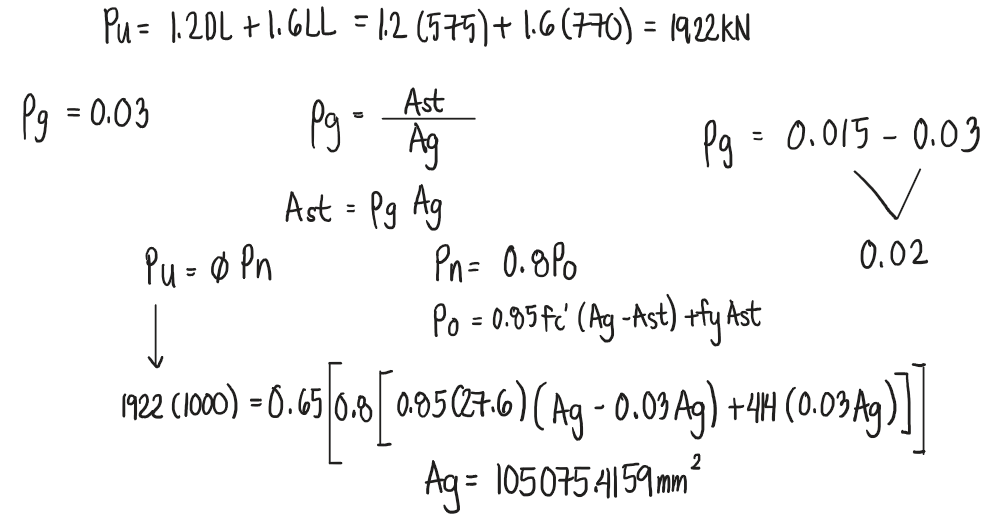 Pu = 1.2DL + 1.6LL = 1.2(575) + 1.6(770) = 1922kN
ρg = 0.03
ρg = Ast / Ag
ρg = 0.015 - 0.03
Ast = ρg Ag
0.02
Pu = ø Pn
Pn = 0.8Po
Po = 0.85fc' (Ag - Ast) + fy Ast
1922 (1000) = 0.65[0.8[0.85(27.6)(Ag - 0.03Ag) + 414 (0.03Ag)]]
Ag = 105075.4159mm²